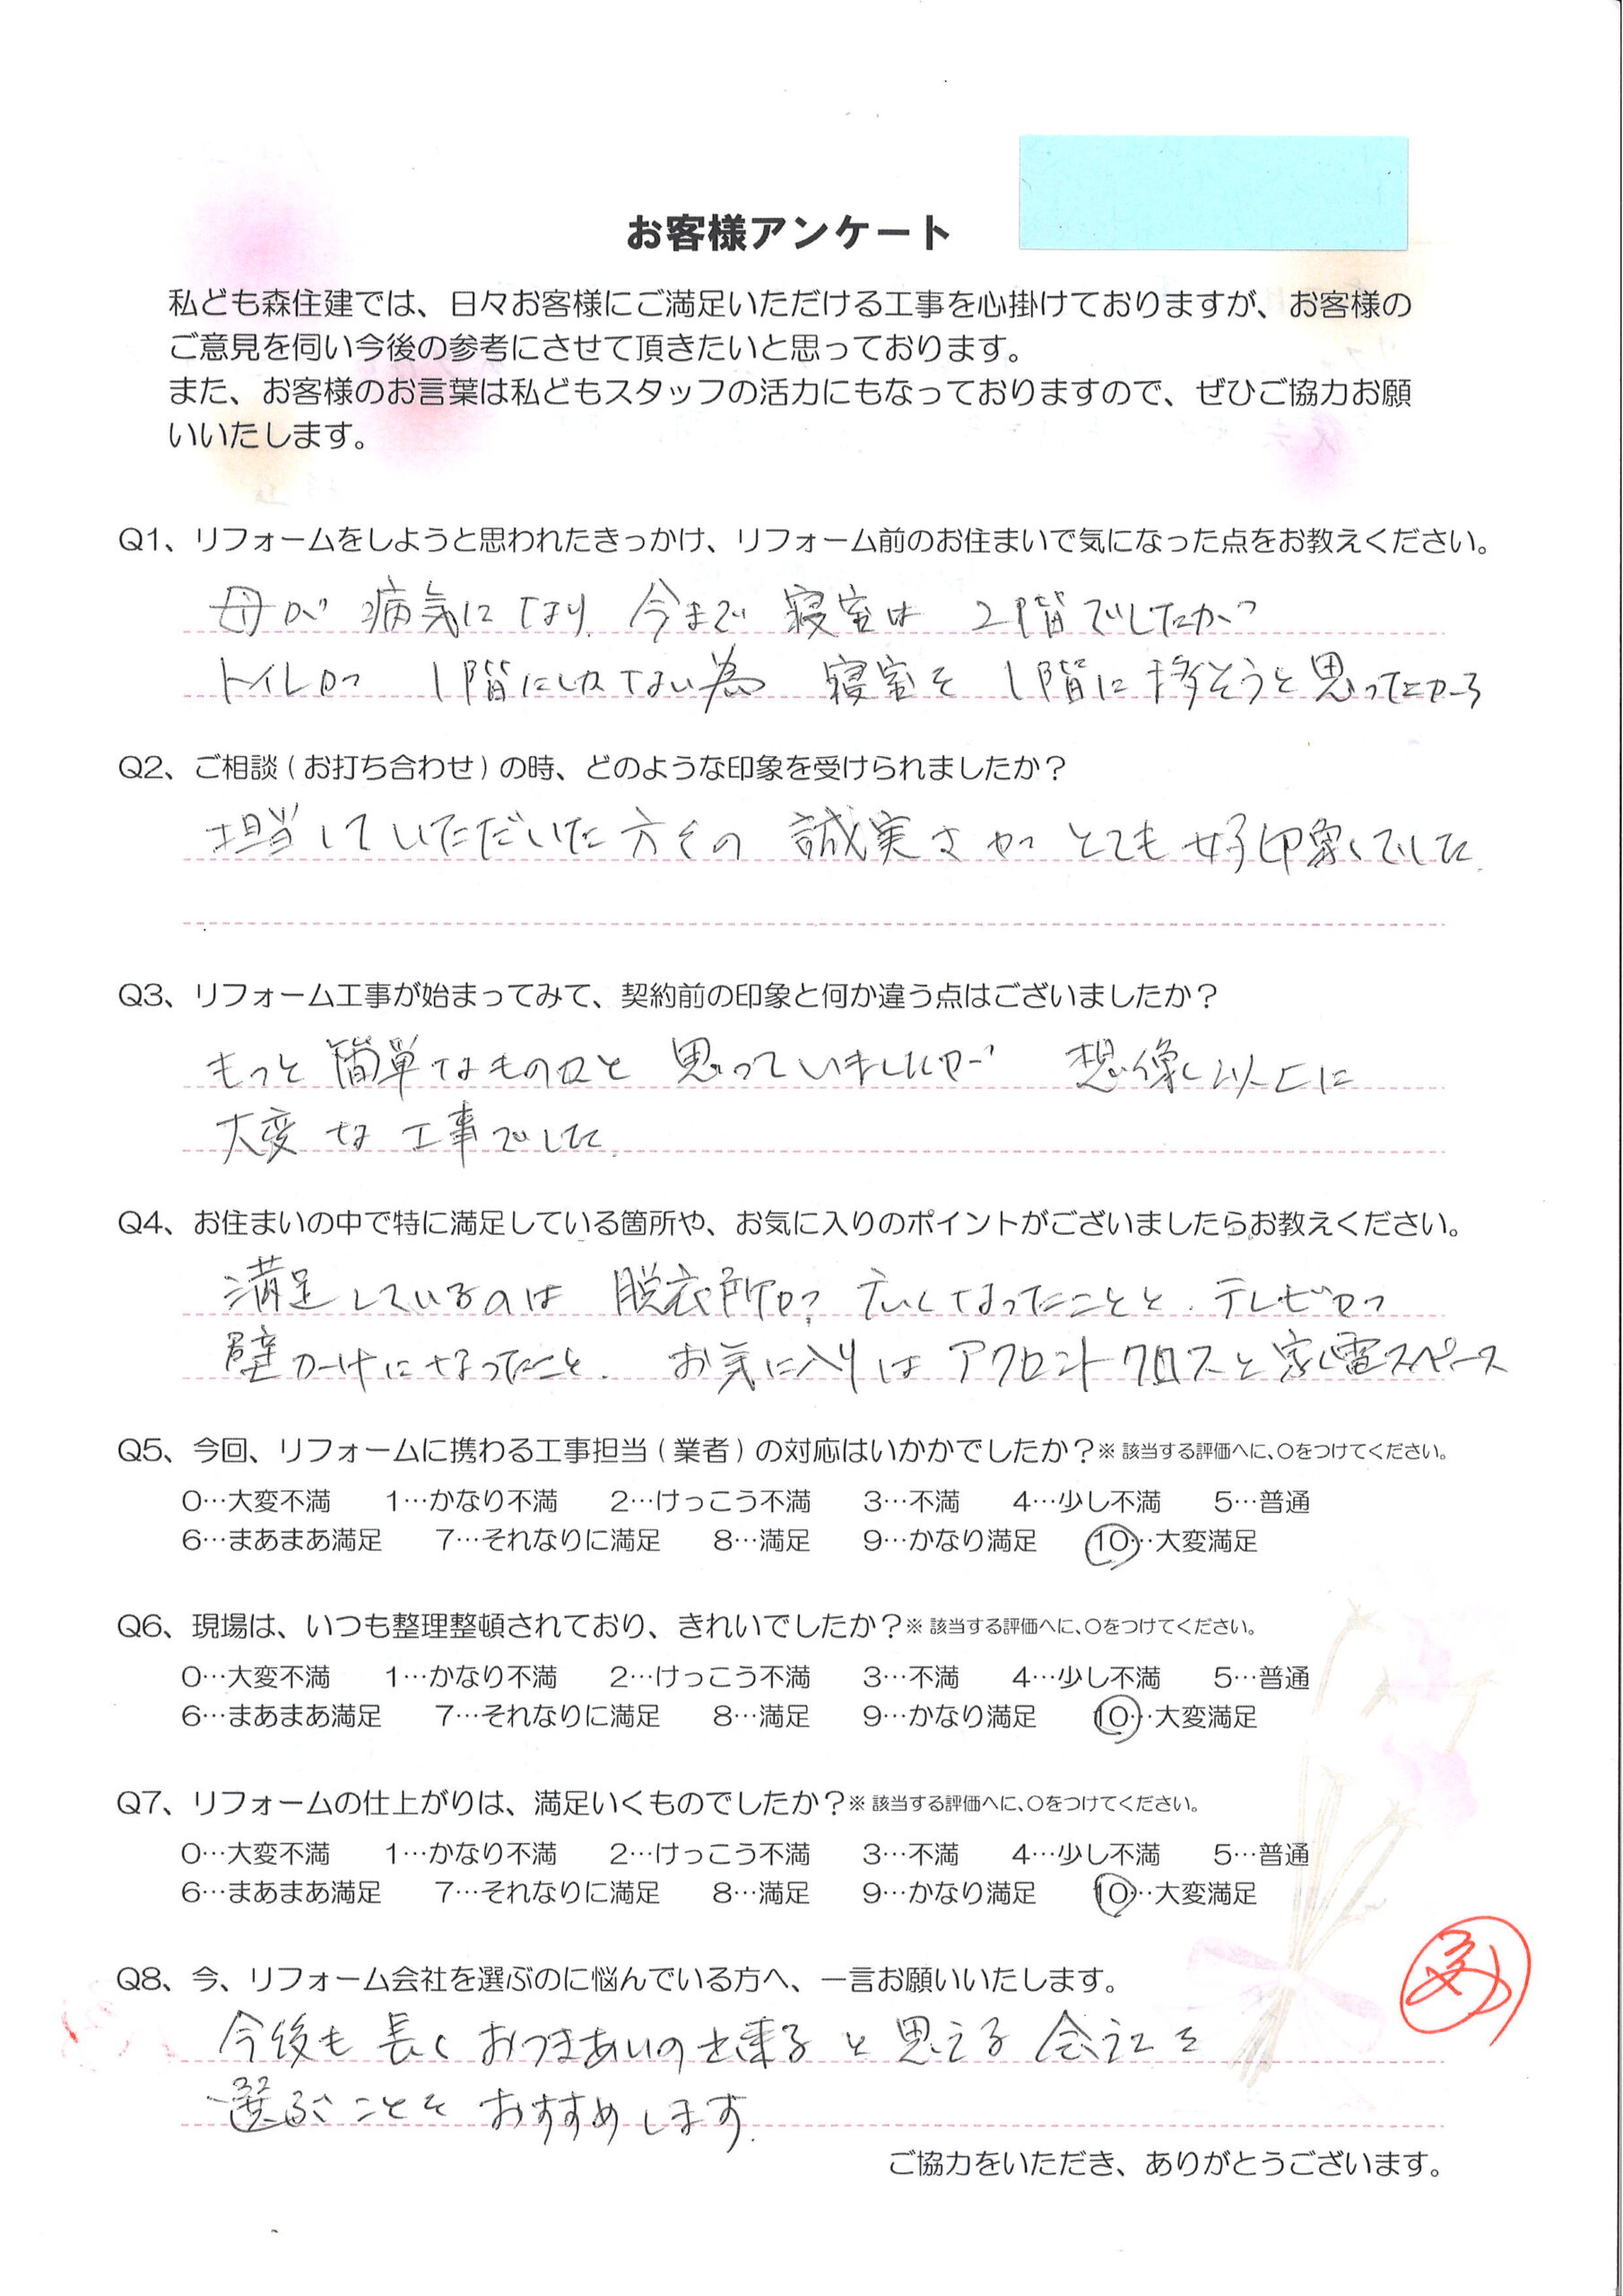 お客様アンケート
私ども森住建では、日々お客様にご満足いただける工事を心掛けておりますが、お客様の
ご意見を伺い今後の参考にさせて頂きたいと思っております。
また、お客様のお言葉は私どもスタッフの活力にもなっておりますので、ぜひご協力お願
いいたします。
Q1、リフォームをしようと思われたきっかけ、リフォーム前のお住まいで気になった点をお教えください。
母が 病気になり、今まで 寝室は 2階でしたが
トイレが 1階にしかない為 寝室を 1階に移そうと思ったから
Q2、ご相談(お打ち合わせ)の時、どのような印象を受けられましたか?
担当していただいた方々の 誠実さが とても 好印象でした。
Q3、リフォーム工事が始まってみて、契約前の印象と何か違う点はございましたか?
もっと 簡単なものかと 思っていましたが 想像以上に
大変な 工事でした。
Q4、お住まいの中で特に満足している箇所や、お気に入りのポイントがございましたらお教えください。
満足しているのは 脱衣所が 広くなったことと、テレビが
壁かけになったこと。 お気に入りは アクセントクロスと家電スペース
Q5、今回、リフォームに携わる工事担当(業者)の対応はいかかでしたか?※該当する評価へに、○をつけてください。
0…大変不満 1…かなり不満 2…けっこう不満 3…不満 4…少し不満 5…普通
6…まあまあ満足 7…それなりに満足 8…満足 9…かなり満足 10…大変満足
Q6、現場は、いつも整理整頓されており、きれいでしたか?※該当する評価へに、○をつけてください。
0…大変不満 1…かなり不満 2…けっこう不満 3…不満 4…少し不満 5…普通
6…まあまあ満足 7…それなりに満足 8…満足 9…かなり満足 10…大変満足
Q7、リフォームの仕上がりは、満足いくものでしたか?※該当する評価へに、○をつけてください。
0…大変不満 1…かなり不満 2…けっこう不満 3…不満 4…少し不満 5…普通
6…まあまあ満足 7…それなりに満足 8…満足 9…かなり満足 10…大変満足
Q8、今、リフォーム会社を選ぶのに悩んでいる方へ、一言お願いいたします。
今後も 長く おつきあいの出来る と 思える 会社を
選ぶことを おすすめします。
ご協力をいただき、ありがとうございます。